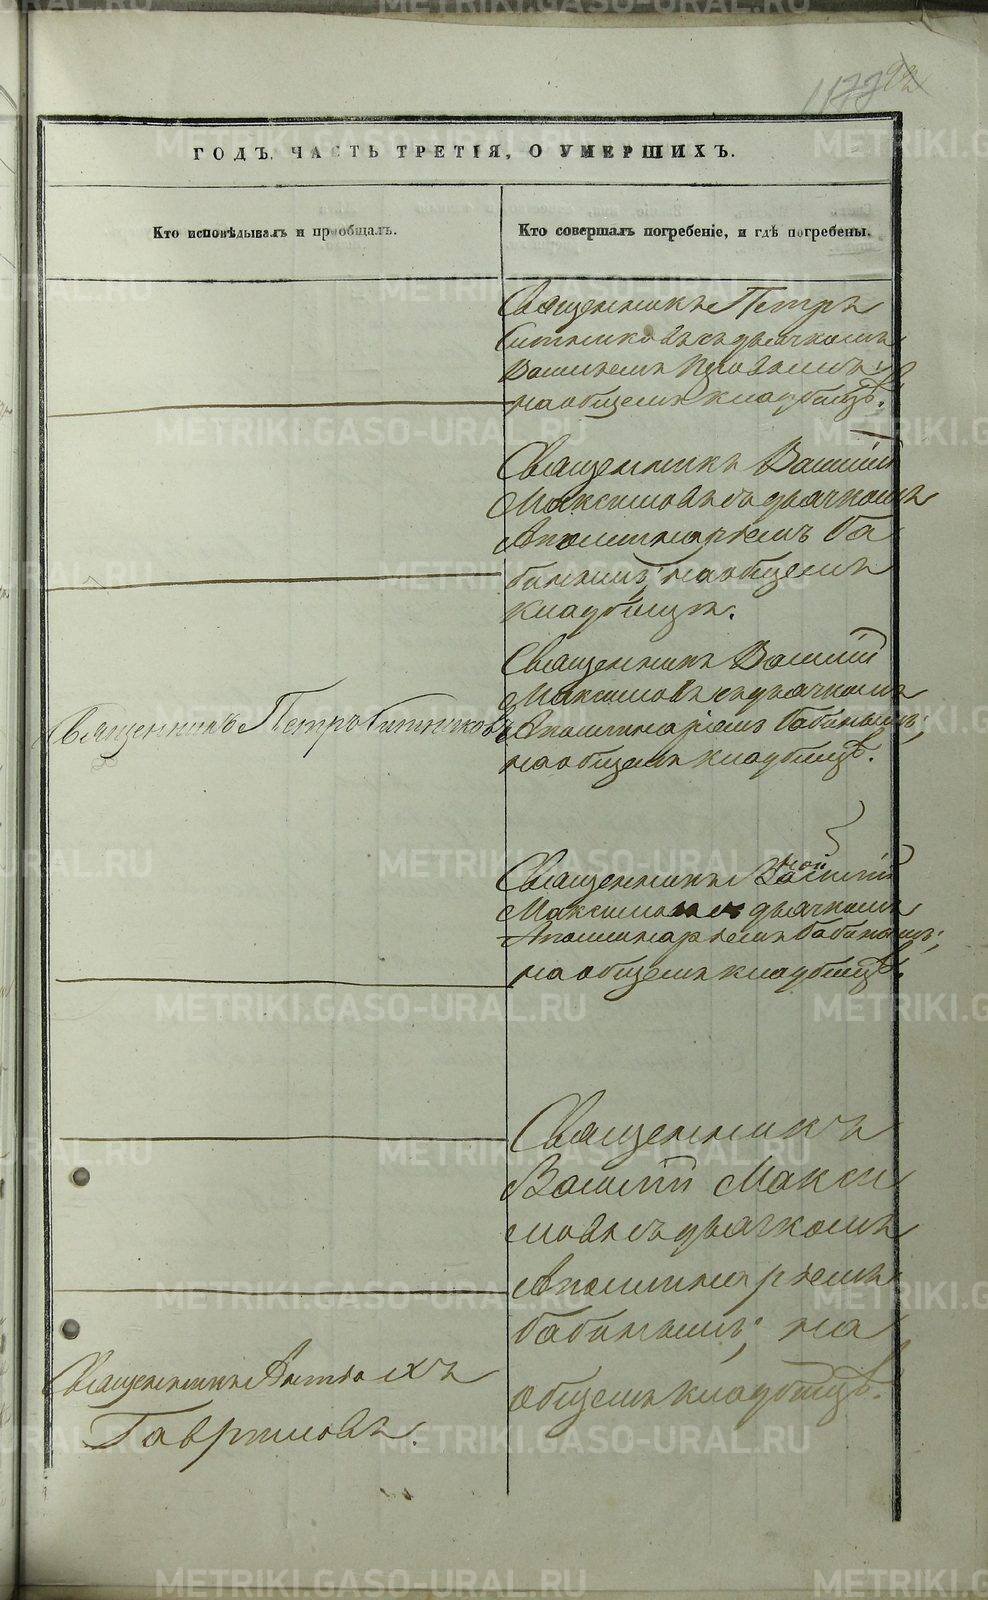 1177 92
ГОДЪ, ЧАСТЬ ТРЕТІЯ, О УМЕРШИХЪ.
Кто исповѣдывалъ и пріобщалъ.
Кто совершалъ погребеніе, и гдѣ погребены.
Священникъ Петръ
Ситниковъ съ дьячкомъ
на общемъ кладбищѣ.
Священникъ Василій
Максимовъ съ дьячкомъ
Аполинаріемъ Ба
бинымъ; на общемъ
кладбищѣ.
Священникъ Петръ Ситниковъ
Священникъ Василій
Максимовъ съ дьячкомъ
Аполинаріемъ Бабинымъ;
на общемъ кладбищѣ.
Священникъ Василій
Максимовъ съ дьячкомъ
Аполинаріемъ Бабинымъ;
на общемъ кладбищѣ.
Священникъ
Василій Макси
мовъ съ дьячкомъ
Аполинаріемъ
Бабинымъ; на
общемъ кладбищѣ.
Священникъ
Гавриловъ.
METRIKI.GASO-URAL.RU